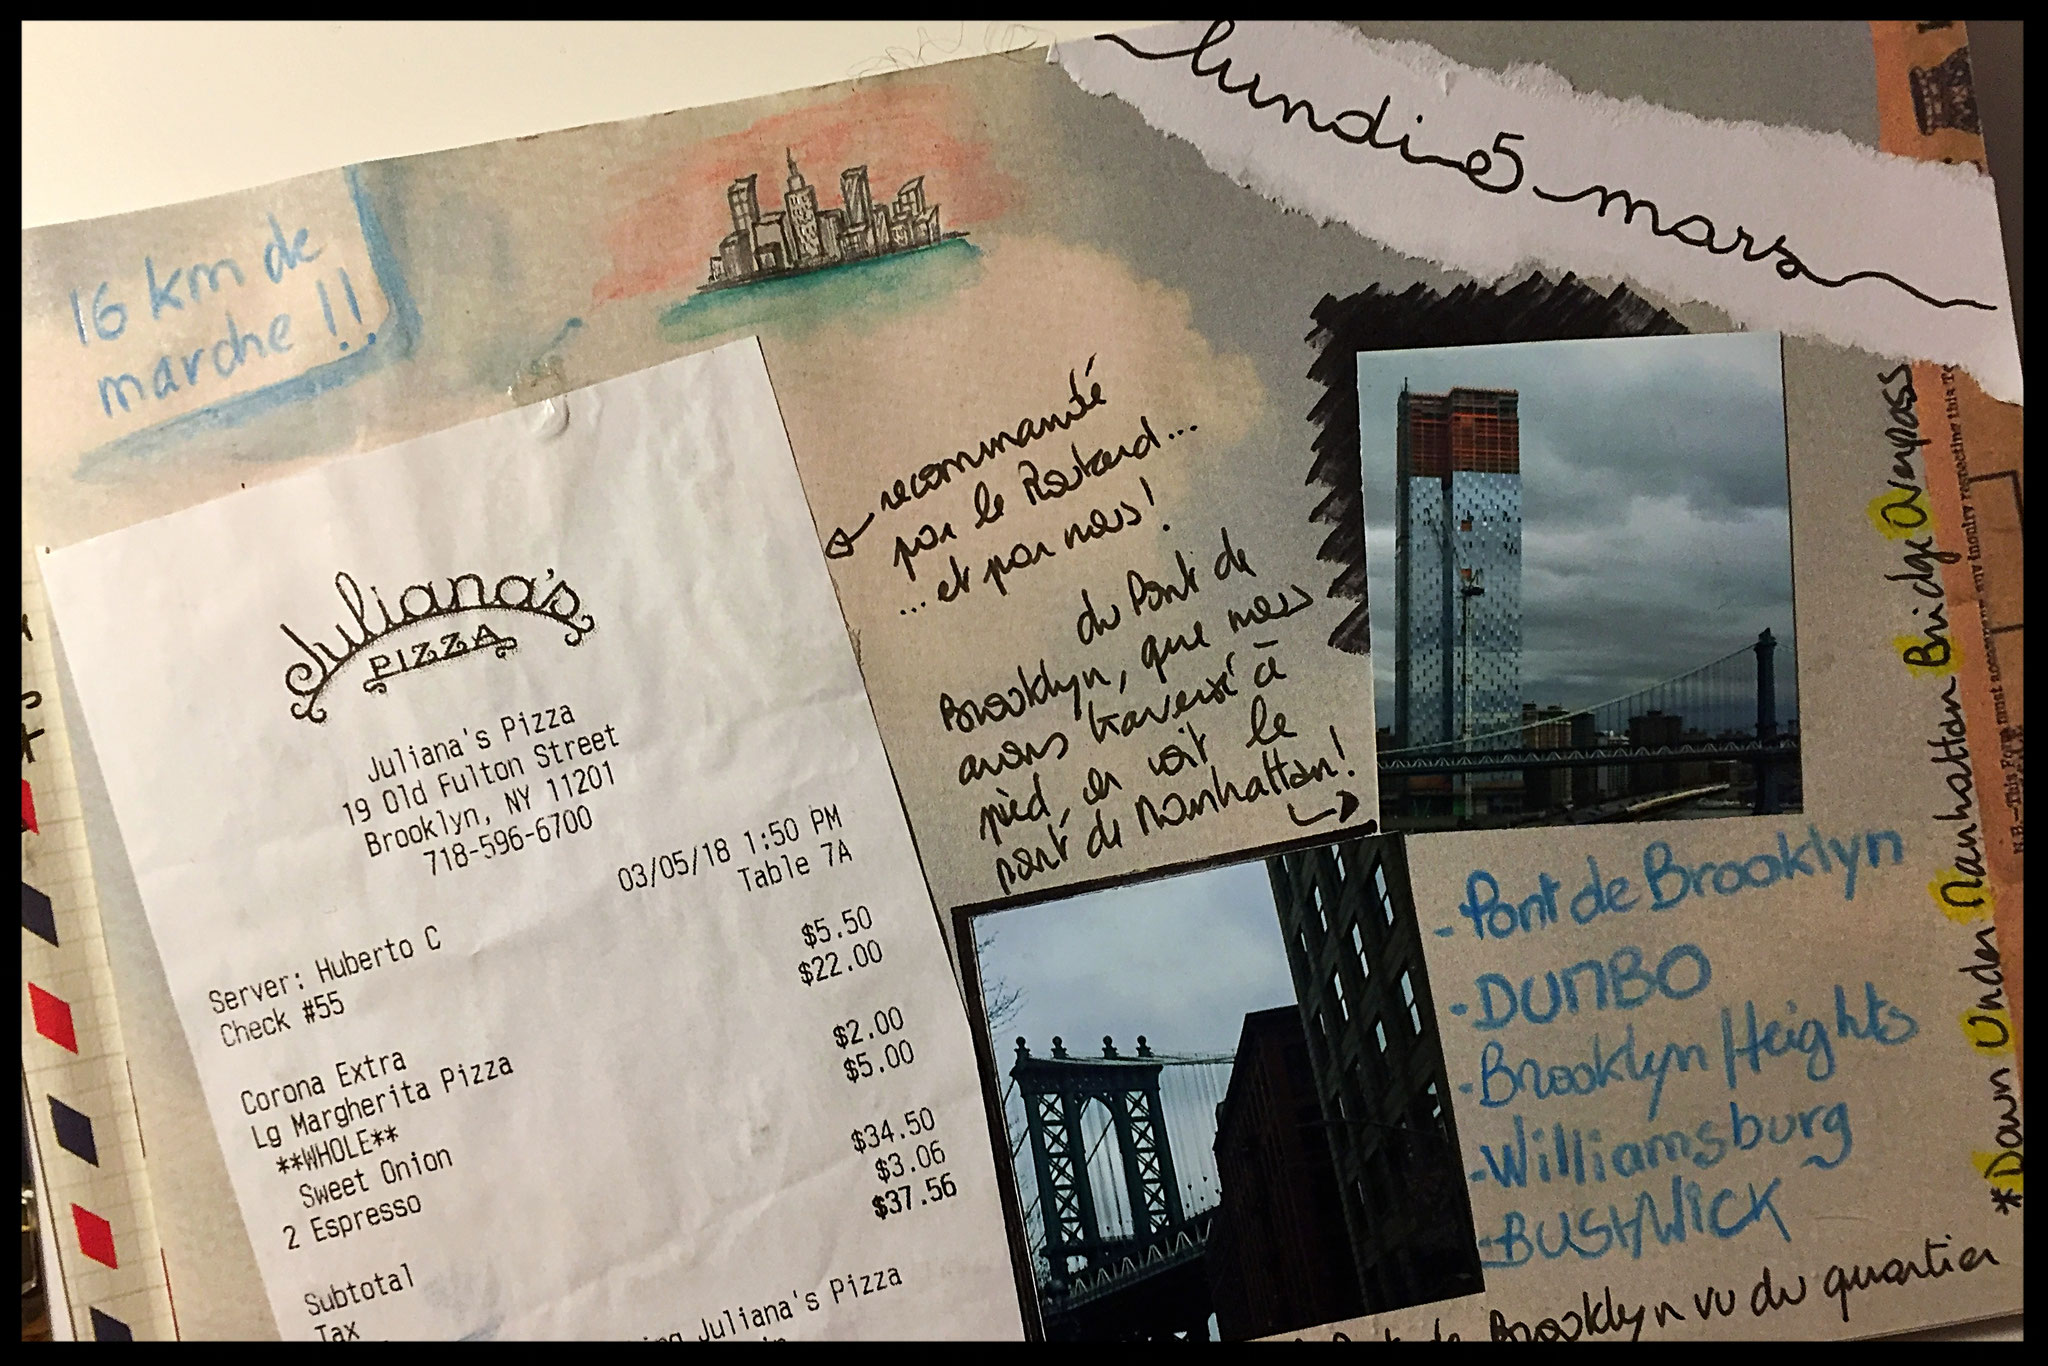 lundi 5 mars
16 km de
marche !!
Juliana's
PIZZA
Juliana's Pizza
19 Old Fulton Street
Brooklyn, NY 11201
718-596-6700
03/05/18 1:50 PM
Table 7A
Server: Huberto C
Check #55
Corona Extra $5.50
Lg Margherita Pizza $22.00
**WHOLE**
Sweet Onion $2.00
2 Espresso $5.00
Subtotal $34.50
Tax $3.06
$37.56
Juliana's Pizza
recommanté
par le Routard...
... et par nous!
du Pont de
Brooklyn, que nous
avons traversé à
pied, on voit le
pont de Manhattan!
- Pont de Brooklyn
- DUMBO
- Brooklyn Heights
- Williamsburg
- BUSHWICK
*Down Under Manhattan Bridge Overpass
Pont de Brooklyn vu du quartier